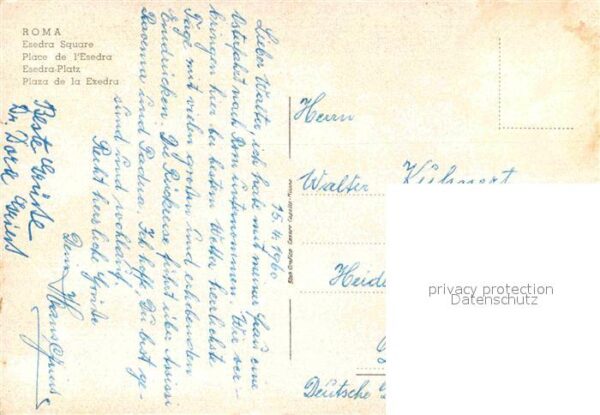 ROMA
Esedra Square
Place de l'Esedra
Esedra-Platz
Plaza de la Exedra
15.4.1960
Lieber Walter, ich habe mit meiner Frau eine
Osterfahrt nach Rom unternommen. Wir ver-
bringen hier bei bestem Wetter herrlichste
Tage mit vielen großen und erhebenden
Eindrücken. Die Rückreise führt über Assisi
Ravenna und Padua. Ich hoffe, Du bist ge-
sund und wohlauf.
Recht herzliche Grüße
Dein Hans
Beste Grüße
Dr. Dora
Herrn
Walter Kühnert
Heide
Deutsche
privacy protection
Datenschutz